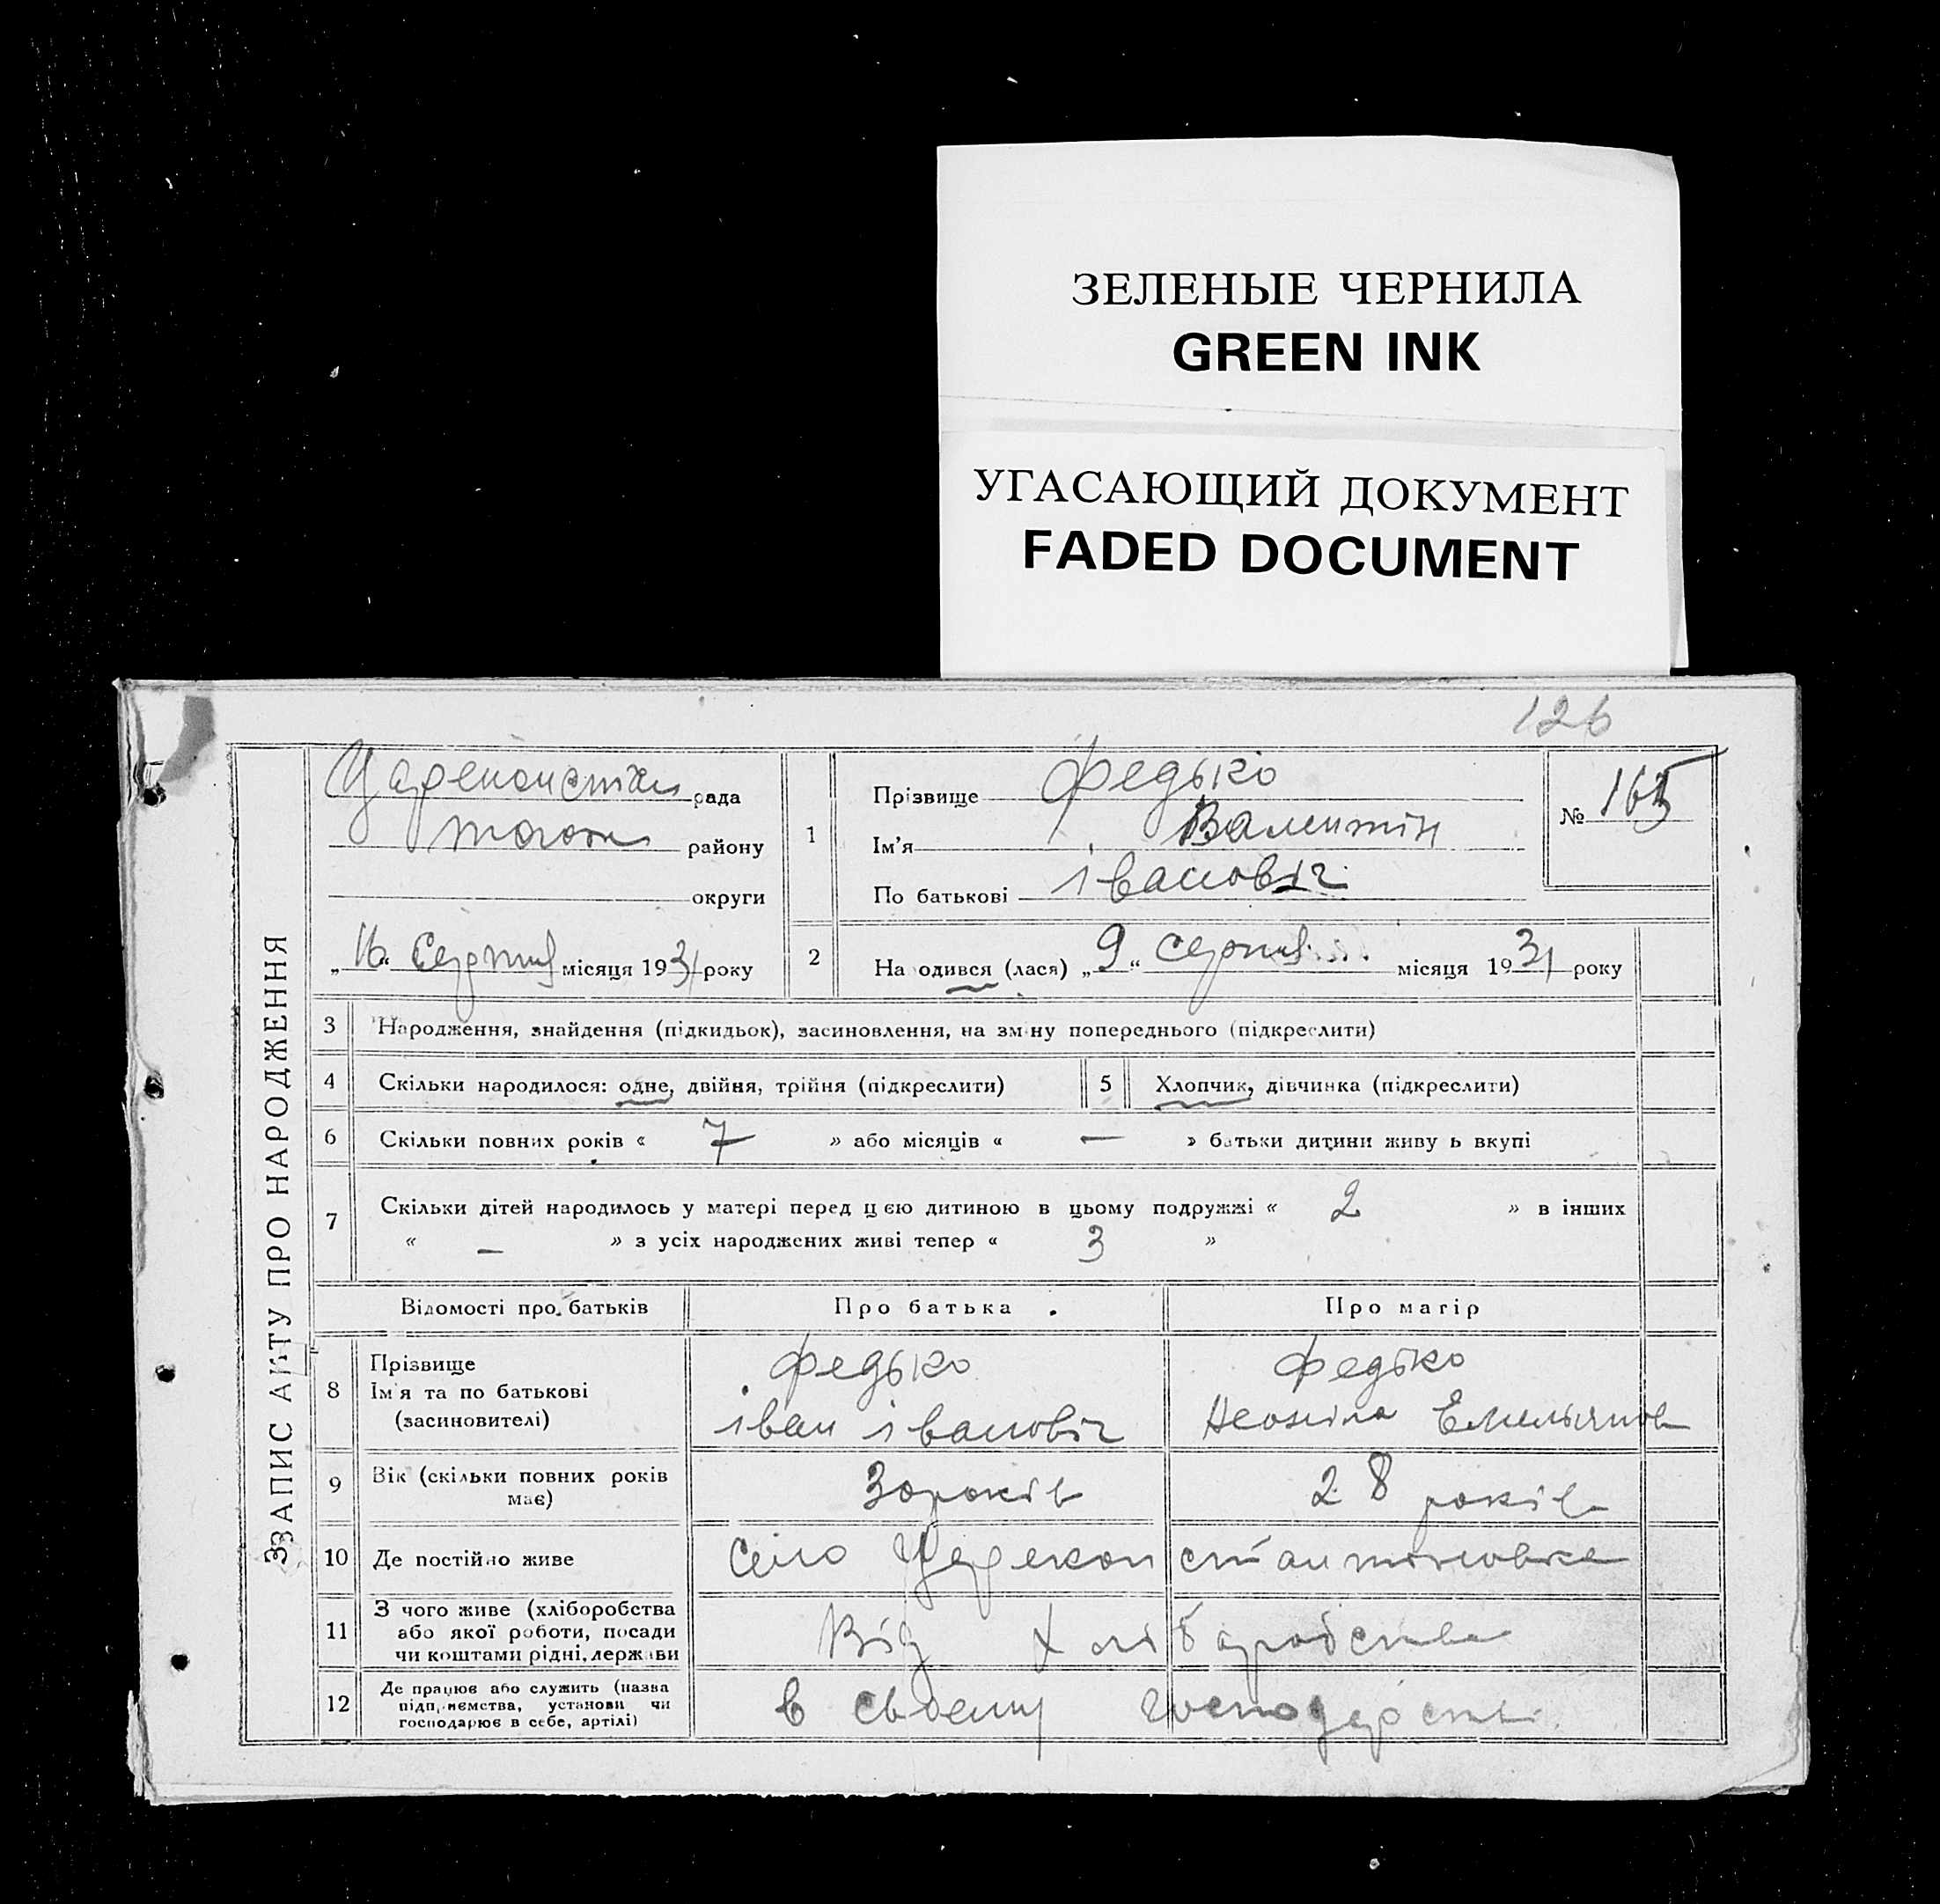 ЗЕЛЕНЫЕ ЧЕРНИЛА
GREEN INK
УГАСАЮЩИЙ ДОКУМЕНТ
FADED DOCUMENT
126
ЗАПИС АКТУ ПРО НАРОДЖЕННЯ
рада
району
округи
„16“ Серпня місяця 1931 року
1
Прізвище Федько
Ім'я Валентін
По батькові Івановіч
№ 165
2
Народився (лася) „9“ серпня місяця 1931 року
3 Народження, знайдення (підкидьок), засиновлення, на зміну попереднього (підкреслити)
4 Скільки народилося: одне, двійня, трійня (підкреслити)
5 Хлопчик, дівчинка (підкреслити)
6 Скільки повних років « 7 » або місяців « — » батьки дитини живуть вкупі
7 Скільки дітей народилось у матері перед цією дитиною в цьому подружжі « 2 » в інших
« — » з усіх народжених живі тепер « 3 »
Відомості про батьків
Про батька
Про матір
8 Прізвище
Ім'я та по батькові
(засиновителі)
Федько
іван івановіч
Федько
9 Вік (скільки повних років
має)
30 років
28 років
10 Де постійно живе
село Цареконстантиновка
11 З чого живе (хліборобства
або якої роботи, посади
чи коштами рідні, держави
Від хліборобства
12 Де працює або служить (назва
підприємства, установи чи
господарює в себе, артілі)
в своему